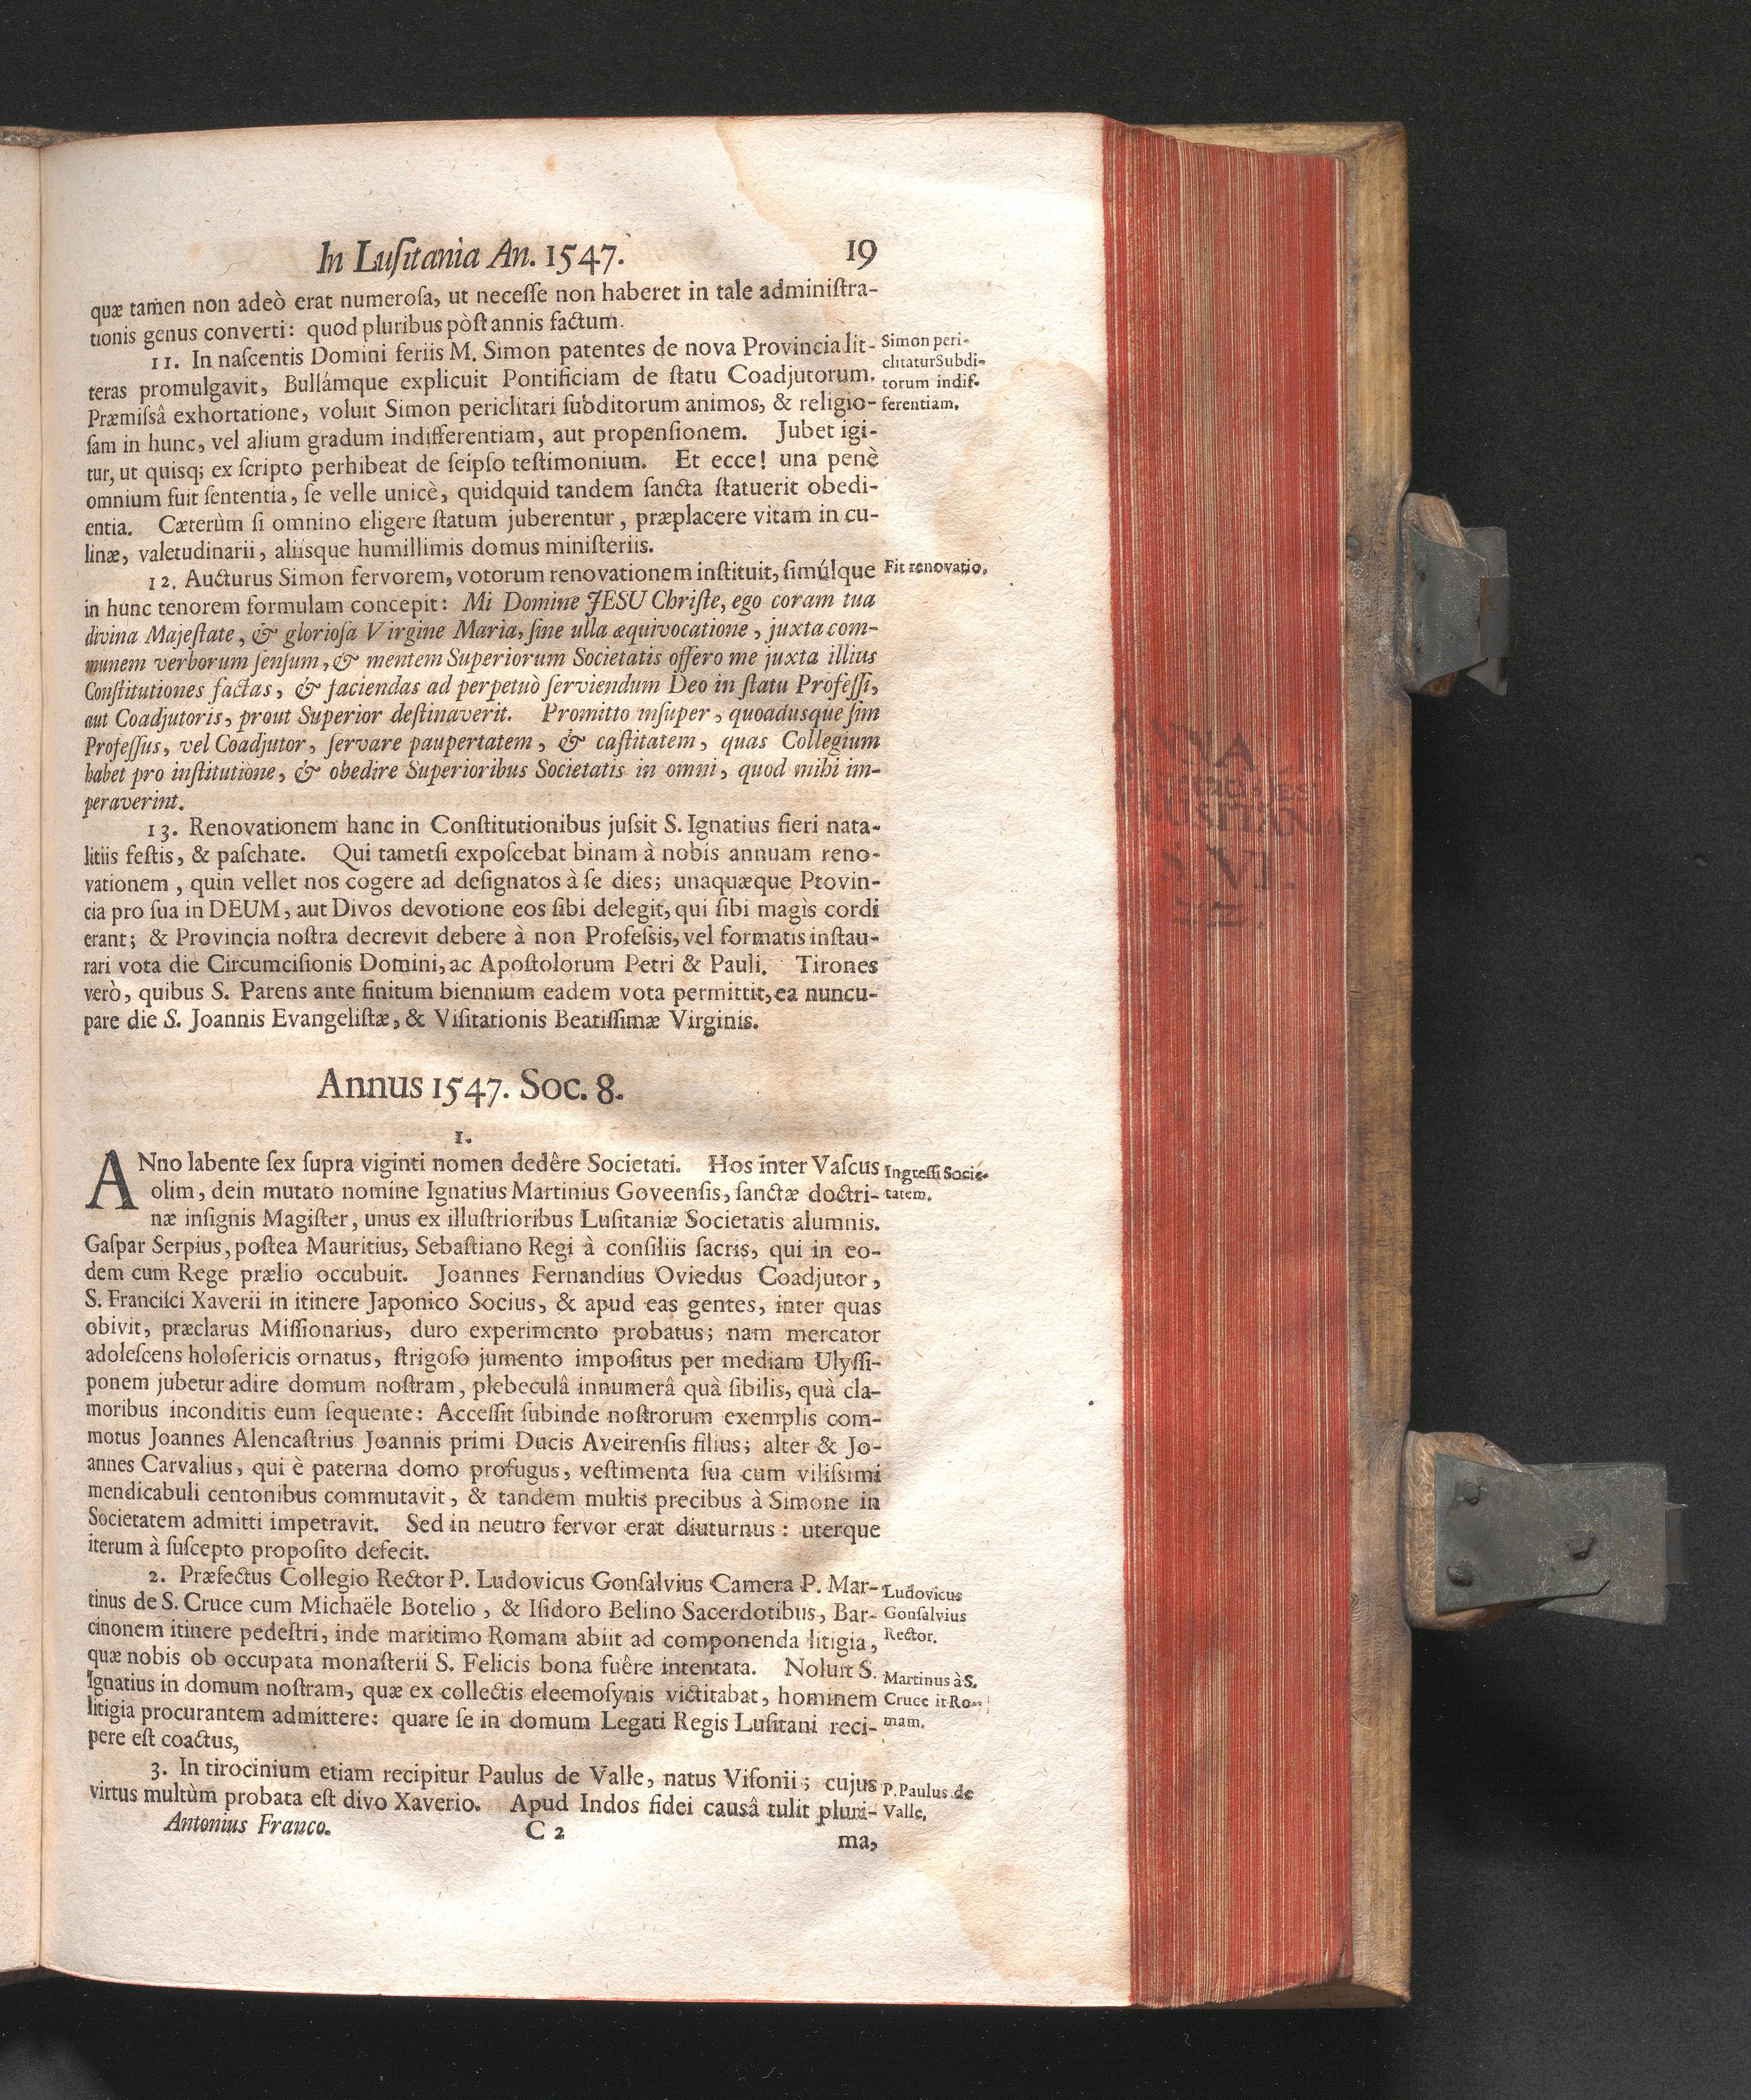 In Luſitania An. 1547. 19
quæ tamen non adeò erat numeroſa, ut neceſſe non haberet in tale adminiſtra-
tionis genus converti: quod pluribus pòſt annis factum.
11. In naſcentis Domini feriis M. Simon patentes de nova Provincia lit-
teras promulgavit, Bullámque explicuit Pontificiam de ſtatu Coadjutorum.
Præmiſsâ exhortatione, voluit Simon periclitari ſubditorum animos, & religio-
ſam in hunc, vel alium gradum indifferentiam, aut propenſionem. Jubet igi-
tur, ut quisq; ex ſcripto perhibeat de ſeipſo teſtimonium. Et ecce! una penè
omnium fuit ſententia, ſe velle unicè, quidquid tandem ſancta ſtatuerit obedi-
entia. Cæterùm ſi omnino eligere ſtatum juberentur, præplacere vitam in cu-
linæ, valetudinarii, aliisque humillimis domus miniſteriis.
Simon peri-
clitatur Subdi-
torum indif-
ferentiam.
12. Aucturus Simon fervorem, votorum renovationem inſtituit, ſimúlque
in hunc tenorem formulam concepit: Mi Domine JESU Chriſte, ego coram tua
divina Majeſtate, & glorioſa Virgine Maria, ſine ulla æquivocatione, juxta com-
munem verborum ſenſum, & mentem Superiorum Societatis offero me juxta illius
Conſtitutiones factas, & faciendas ad perpetuò ſerviendum Deo in ſtatu Profeſſi,
aut Coadjutoris, prout Superior deſtinaverit. Promitto inſuper, quoadusque ſim
Profeſſus, vel Coadjutor, ſervare paupertatem, & caſtitatem, quas Collegium
habet pro inſtitutione, & obedire Superioribus Societatis in omni, quod mihi im-
peraverint.
Fit renovatio.
13. Renovationem hanc in Conſtitutionibus juſsit S. Ignatius fieri nata-
litiis feſtis, & paſchate. Qui tametſi expoſcebat binam à nobis annuam reno-
vationem, quin vellet nos cogere ad deſignatos à ſe dies; unaquæque Provin-
cia pro ſua in DEUM, aut Divos devotione eos ſibi delegit, qui ſibi magìs cordi
erant; & Provincia noſtra decrevit debere à non Profeſsis, vel formatis inſtau-
rari vota die Circumciſionis Domini, ac Apoſtolorum Petri & Pauli. Tirones
verò, quibus S. Parens ante finitum biennium eadem vota permittit, ea nuncu-
pare die S. Joannis Evangeliſtæ, & Viſitationis Beatiſſimæ Virginis.
Annus 1547. Soc. 8.
1.
ANno labente ſex ſupra viginti nomen dedêre Societati. Hos inter Vaſcus
olim, dein mutato nomine Ignatius Martinius Goveenſis, ſanctæ doctri-
næ inſignis Magiſter, unus ex illuſtrioribus Luſitaniæ Societatis alumnis.
Gaſpar Serpius, poſtea Mauritius, Sebaſtiano Regi à conſiliis ſacris, qui in eo-
dem cum Rege prælio occubuit. Joannes Fernandius Oviedus Coadjutor,
S. Franciſci Xaverii in itinere Japonico Socius, & apud eas gentes, inter quas
obivit, præclarus Miſſionarius, duro experimento probatus; nam mercator
adoleſcens holoſericis ornatus, ſtrigoſo jumento impoſitus per mediam Ulyſſi-
ponem jubetur adire domum noſtram, plebeculâ innumerâ quà ſibilis, quà cla-
moribus inconditis eum ſequente: Acceſſit ſubinde noſtrorum exemplis com-
motus Joannes Alencaſtrius Joannis primi Ducis Aveirenſis filius; alter & Jo-
annes Carvalius, qui è paterna domo profugus, veſtimenta ſua cum viliſsimi
mendicabuli centonibus commutavit, & tandem multis precibus à Simone in
Societatem admitti impetravit. Sed in neutro fervor erat diuturnus: uterque
iterum à ſuſcepto propoſito defecit.
Ingreſſi Socie-
tatem.
2. Præfectus Collegio Rector P. Ludovicus Gonſalvius Camera P. Mar-
tinus de S. Cruce cum Michaële Botelio, & Iſidoro Belino Sacerdotibus, Bar-
cinonem itinere pedeſtri, inde maritimo Romam abiit ad componenda litigia,
quæ nobis ob occupata monaſterii S. Felicis bona fuêre intentata. Noluit S.
Ignatius in domum noſtram, quæ ex collectis eleemoſynis victitabat, hominem
litigia procurantem admittere: quare ſe in domum Legati Regis Luſitani reci-
pere eſt coactus,
Ludovicus
Gonſalvius
Rector.
Martinus à S.
Cruce it Ro-
mam.
3. In tirocinium etiam recipitur Paulus de Valle, natus Viſonii; cujus
virtus multùm probata eſt divo Xaverio. Apud Indos fidei causâ tulit pluri-
P. Paulus de
Valle.
Antonius Franco. C 2 ma,